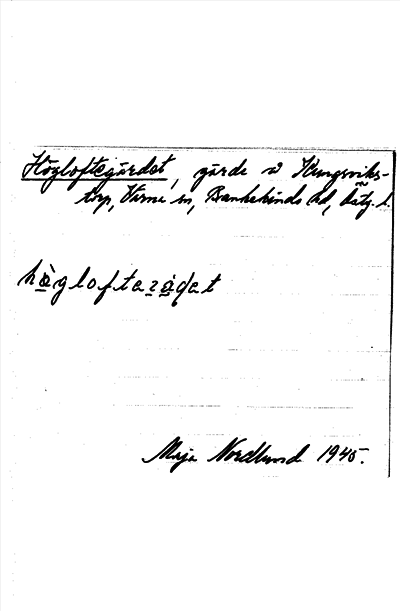 Högloftegärdet, gärde å Kungsviks-
torp, Värna sn, Bankekinds hd, Östg. l.
Maja Nordlund 1945.